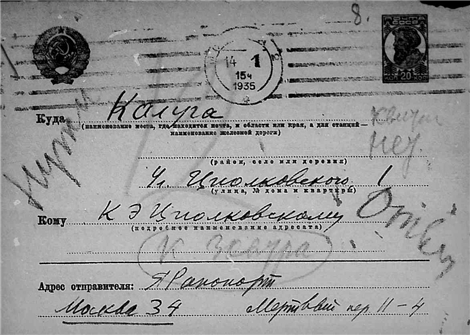 8.
14 1
15ч
1935
СССР
20
Куда Калуга
(наименование места, где находится почта, и области или края, а для станций—
наименование железной дороги)
нет.
(район, село или деревня)
ул. Циолковского 1
(улица, № дома и квартиры)
Кому К Э Циолковскому
(подробное наименование адресата)
Адрес отправителя: Я Рапопорт
Москва 34 Мертвый пер 11-4